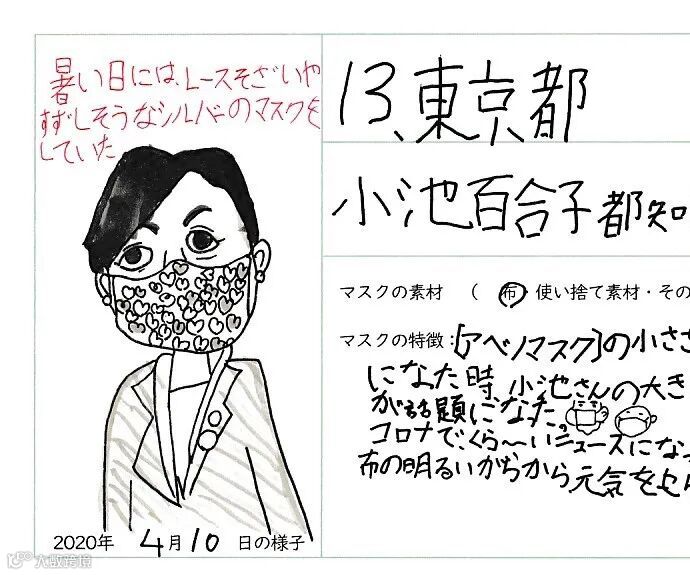 暑い日には、レースそざいや
すずしそうなシルバーのマスクを
していた
13、東京都
小池百合子都知
マスクの素材 （ 布・使い捨て素材・その
マスクの特徴：[アベノマスク]の小ささ
になった時、小池さんの大き
が話題になった。
コロナで、くら〜いニュースになっ
布の明るいがらから元気をもら
2020年 4月10日の様子
大数跨境